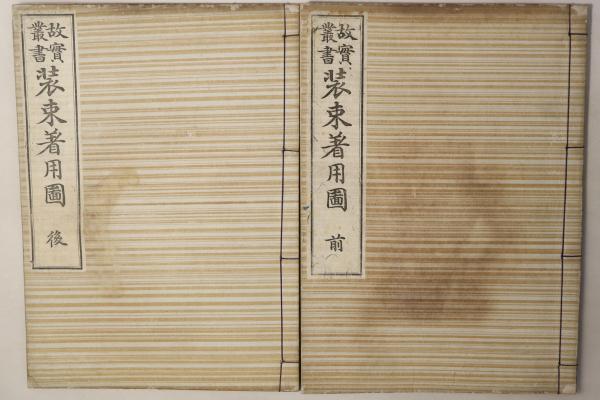 故實
叢書
装束著用圖
前
故實
叢書
装束著用圖
後